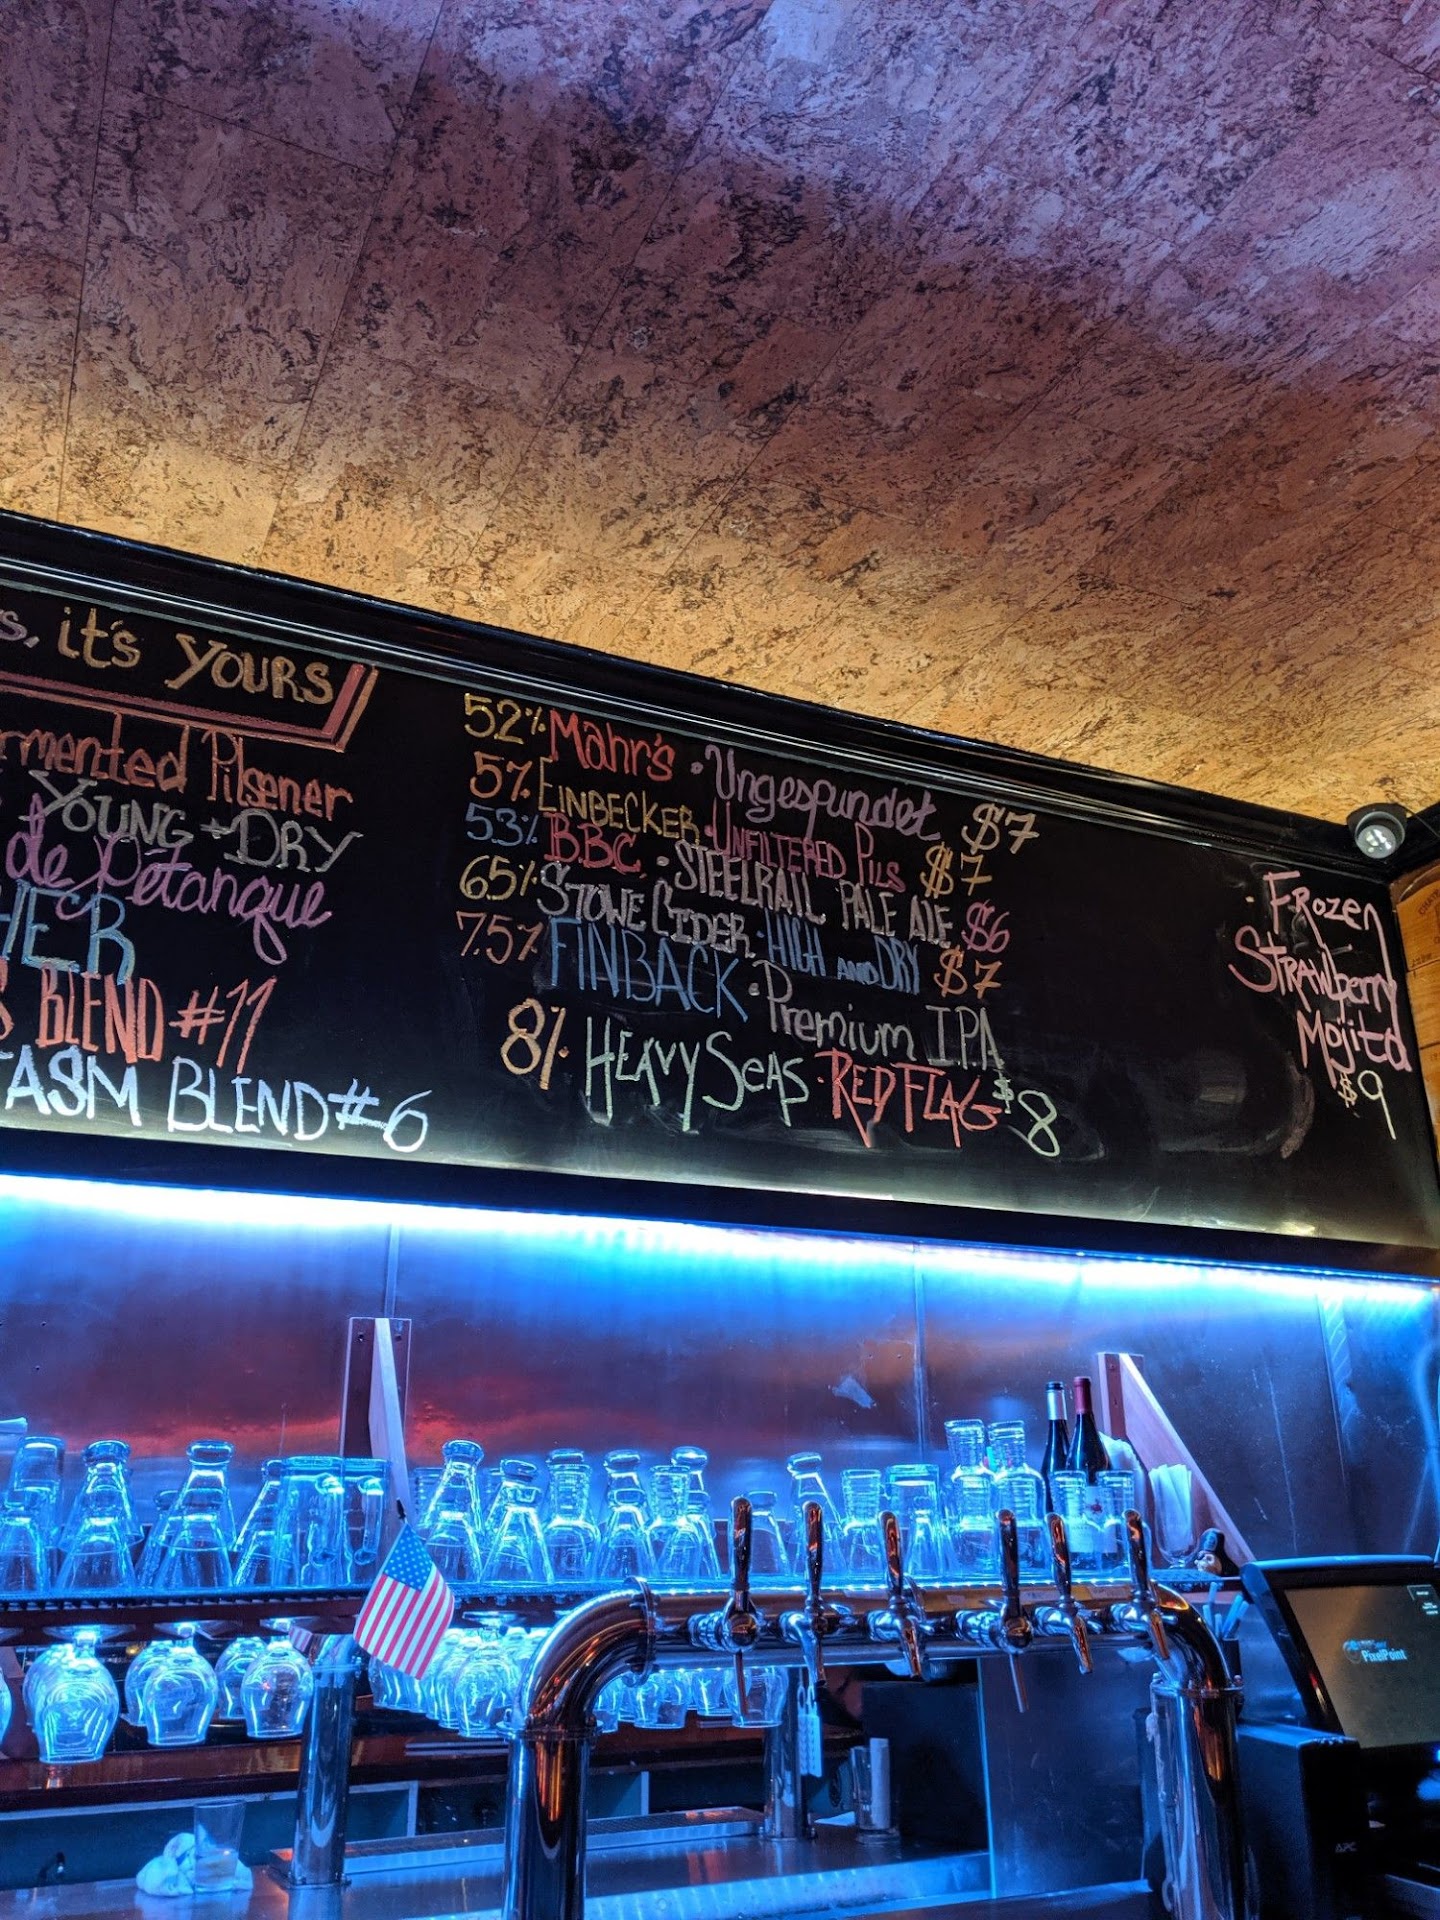 s, it's YOURS
rmented Pilsener
YOUNG + DRY
de Pétanque
HER
S BLEND #11
TASM BLEND #6
5.2% Mahr's · Ungespundet $7
5% EINBECKER · UNFILTERED PILS $7
5.3% B.B.C. · STEELRAIL PALE ALE $6
6.5% STOWE CIDER · HIGH AND DRY $7
7.5% FINBACK · Premium IPA
8% HEAVY SEAS · RED FLAG $8
· FROZEN
STRAWberry
Mojito
$9
PixelPoint
APC